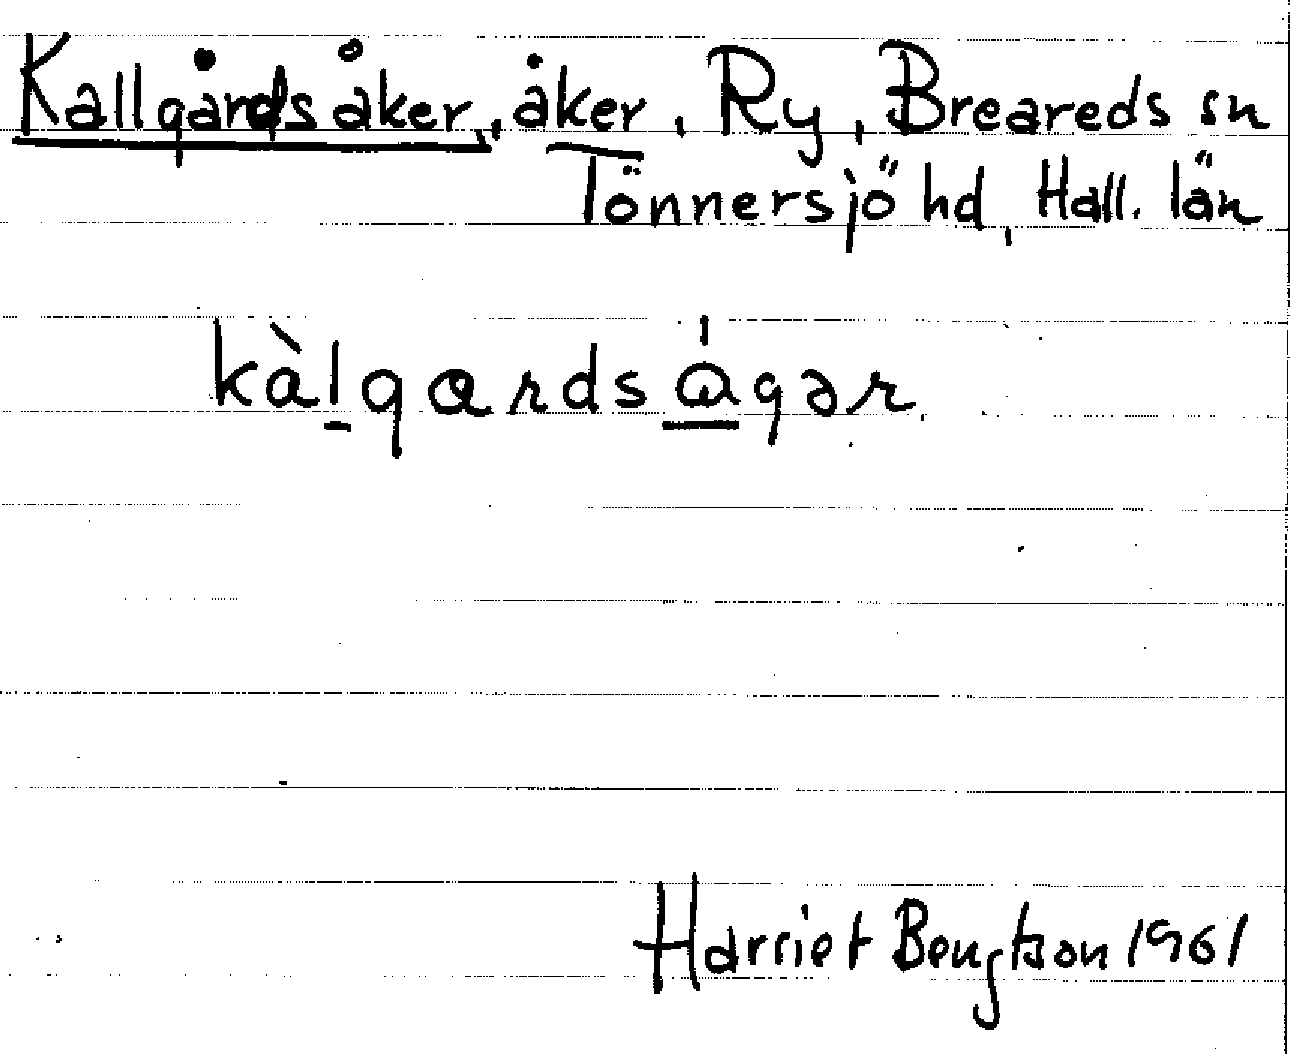 Kallgårdsåker, åker, Ry, Breareds sn
Tönnersjö hd, Hall. län
kàl̠gɑrdsɑ̠́gər
Harriet Bengtson 1961